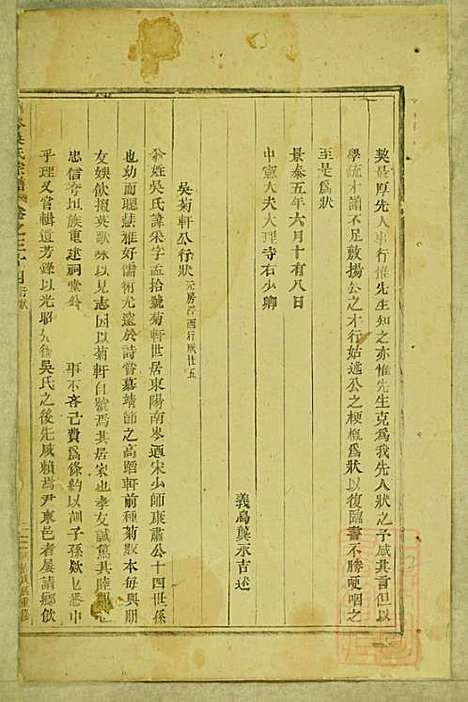 契最厚先人事行惟先生知之亦惟先生克為我先人狀之予感其言但以
學疏才譾不足敷揚公之才行姑述公之梗概為狀以復臨書不勝哽咽之
至是為狀
景泰五年六月十有八日
中憲大夫大理寺右少卿
義烏龔永吉述
吳菊軒公行狀
翁姓吳氏諱采字孟拾號菊軒世居東陽南岑迺宋少師康肅公十四世係
也幼而聰慧雅好儒術尤邃於詩嘗慕靖節之高蹈軒前種菊數本每與朋
友娛飲掇英歌咏以見志因以菊軒自號焉其居家也孝友誠篤其睦
忠信夸以族重建祠堂 事不吝己費為條約以訓子孫 悉中
乎理又嘗輯遺芳錄以光昭 吳氏之後先咸賴焉尹東邑者屢請鄉飲
吳氏宗譜 卷之三十四 行狀